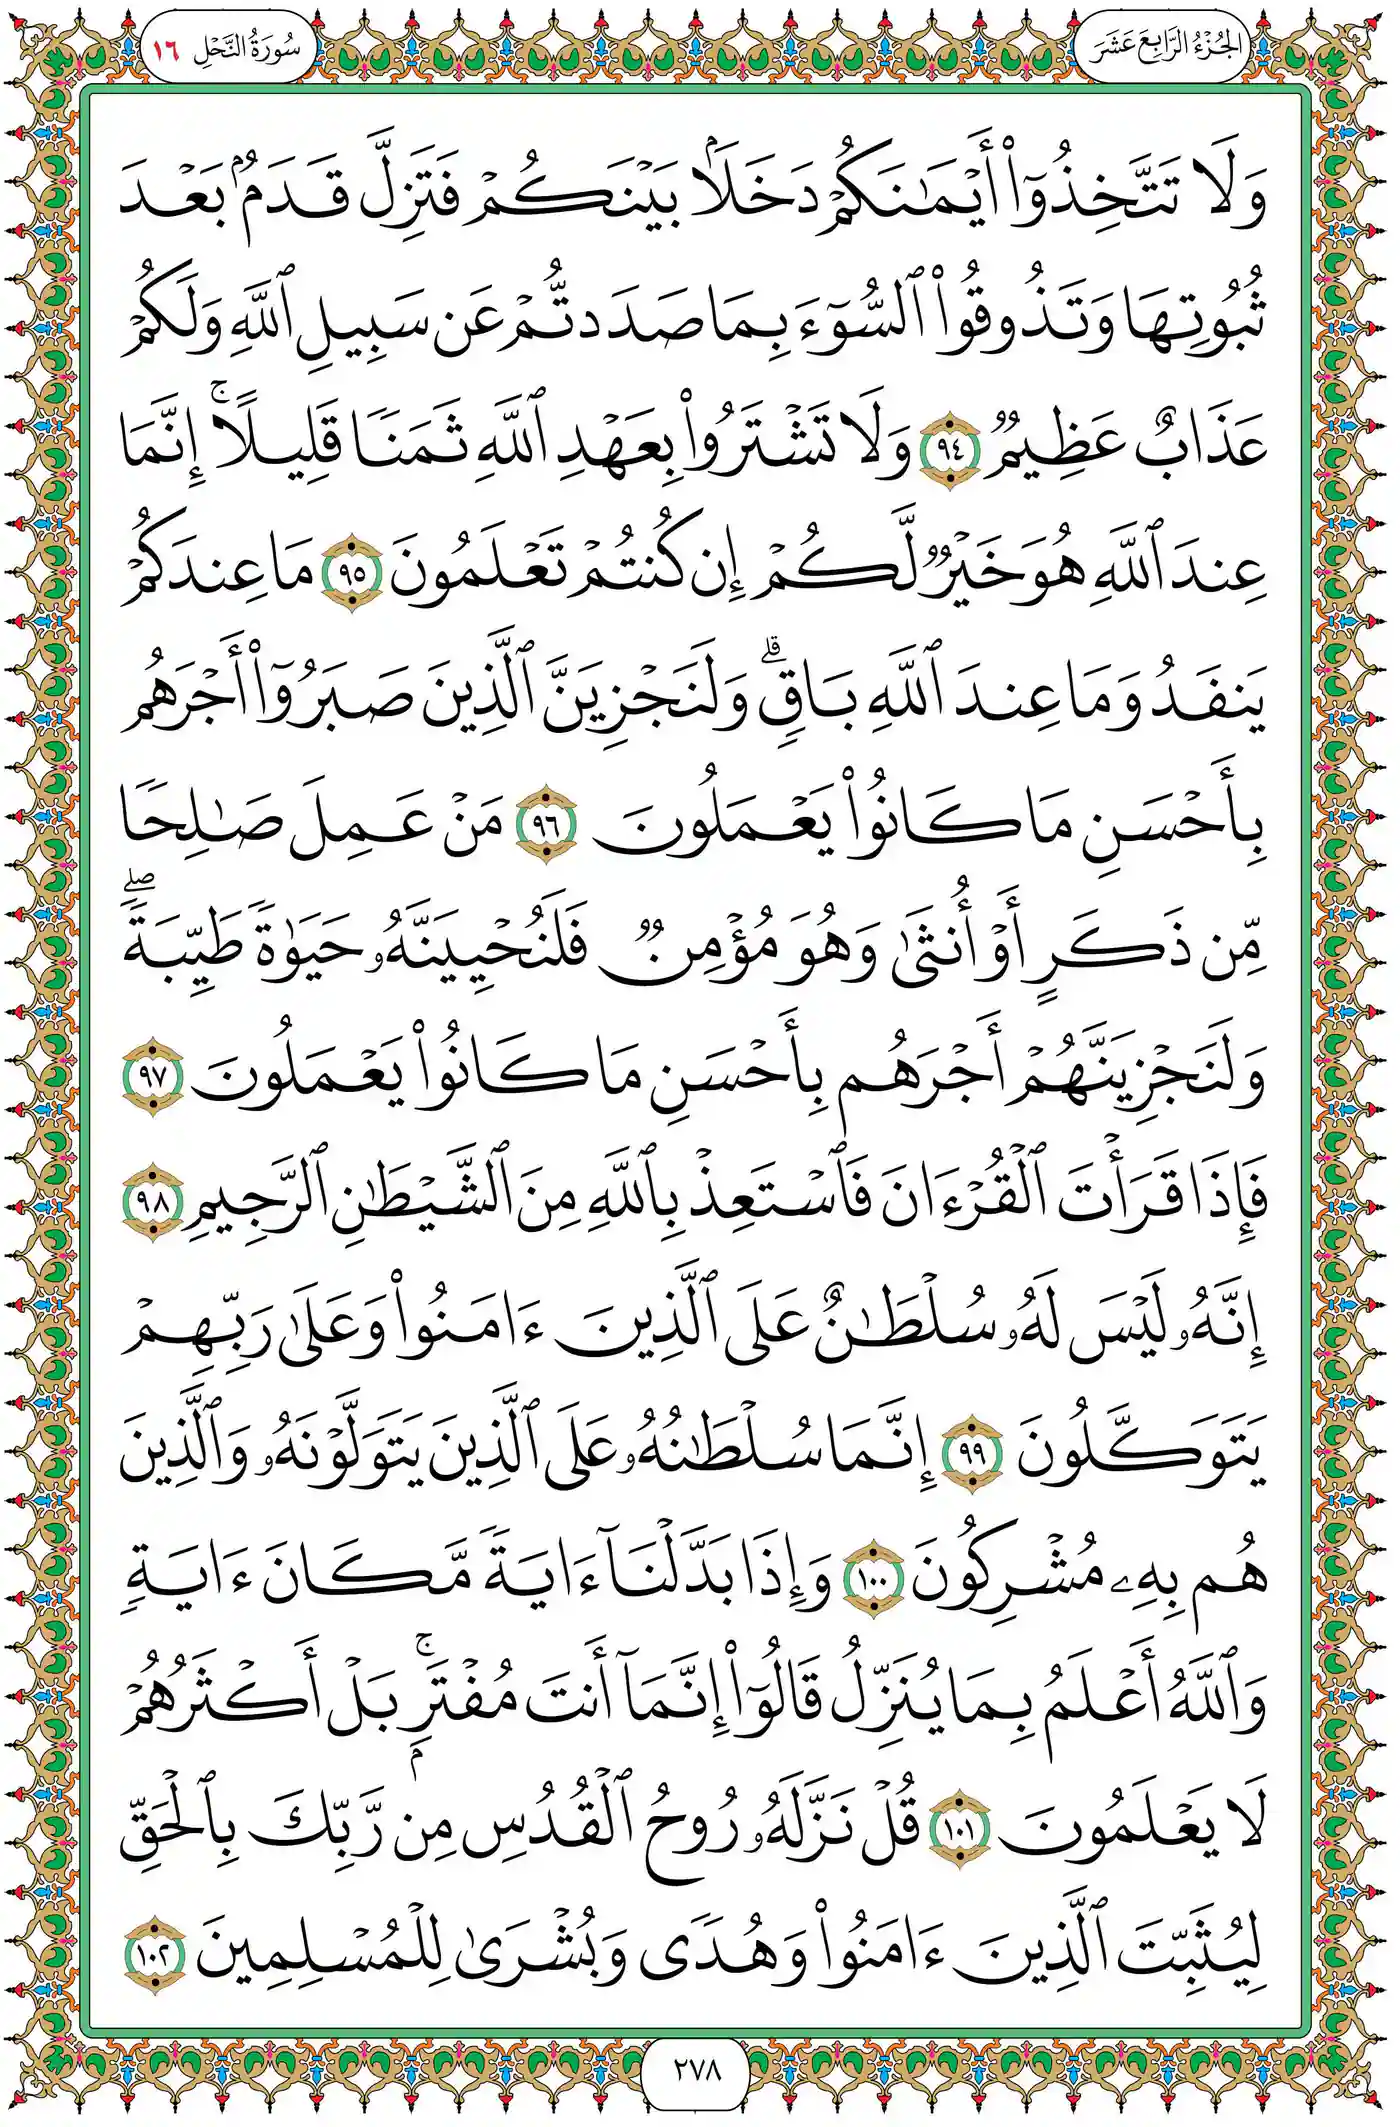 الجُزْءُ الرَّابِعَ عَشَرَ
سُورَةُ النَّحْلِ ١٦
وَلَا تَتَّخِذُوٓا۟ أَيْمَـٰنَكُمْ دَخَلًۢا بَيْنَكُمْ فَتَزِلَّ قَدَمٌۢ بَعْدَ
ثُبُوتِهَا وَتَذُوقُوا۟ ٱلسُّوٓءَ بِمَا صَدَدتُّمْ عَن سَبِيلِ ٱللَّهِ وَلَكُمْ
عَذَابٌ عَظِيمٌ ٩٤ وَلَا تَشْتَرُوا۟ بِعَهْدِ ٱللَّهِ ثَمَنًا قَلِيلًا ۚ إِنَّمَا
عِندَ ٱللَّهِ هُوَ خَيْرٌ لَّكُمْ إِن كُنتُمْ تَعْلَمُونَ ٩٥ مَا عِندَكُمْ
يَنفَدُ وَمَا عِندَ ٱللَّهِ بَاقٍ ۗ وَلَنَجْزِيَنَّ ٱلَّذِينَ صَبَرُوٓا۟ أَجْرَهُم
بِأَحْسَنِ مَا كَانُوا۟ يَعْمَلُونَ ٩٦ مَنْ عَمِلَ صَـٰلِحًا
مِّن ذَكَرٍ أَوْ أُنثَىٰ وَهُوَ مُؤْمِنٌ فَلَنُحْيِيَنَّهُۥ حَيَوٰةً طَيِّبَةً ۖ
وَلَنَجْزِيَنَّهُمْ أَجْرَهُم بِأَحْسَنِ مَا كَانُوا۟ يَعْمَلُونَ ٩٧
فَإِذَا قَرَأْتَ ٱلْقُرْءَانَ فَٱسْتَعِذْ بِٱللَّهِ مِنَ ٱلشَّيْطَـٰنِ ٱلرَّجِيمِ ٩٨
إِنَّهُۥ لَيْسَ لَهُۥ سُلْطَـٰنٌ عَلَى ٱلَّذِينَ ءَامَنُوا۟ وَعَلَىٰ رَبِّهِمْ
يَتَوَكَّلُونَ ٩٩ إِنَّمَا سُلْطَـٰنُهُۥ عَلَى ٱلَّذِينَ يَتَوَلَّوْنَهُۥ وَٱلَّذِينَ
هُم بِهِۦ مُشْرِكُونَ ١٠٠ وَإِذَا بَدَّلْنَآ ءَايَةً مَّكَانَ ءَايَةٍ
وَٱللَّهُ أَعْلَمُ بِمَا يُنَزِّلُ قَالُوٓا۟ إِنَّمَآ أَنتَ مُفْتَرٍۭ ۚ بَلْ أَكْثَرُهُمْ
لَا يَعْلَمُونَ ١٠١ قُلْ نَزَّلَهُۥ رُوحُ ٱلْقُدُسِ مِن رَّبِّكَ بِٱلْحَقِّ
لِيُثَبِّتَ ٱلَّذِينَ ءَامَنُوا۟ وَهُدًى وَبُشْرَىٰ لِلْمُسْلِمِينَ ١٠٢
٢٧٨